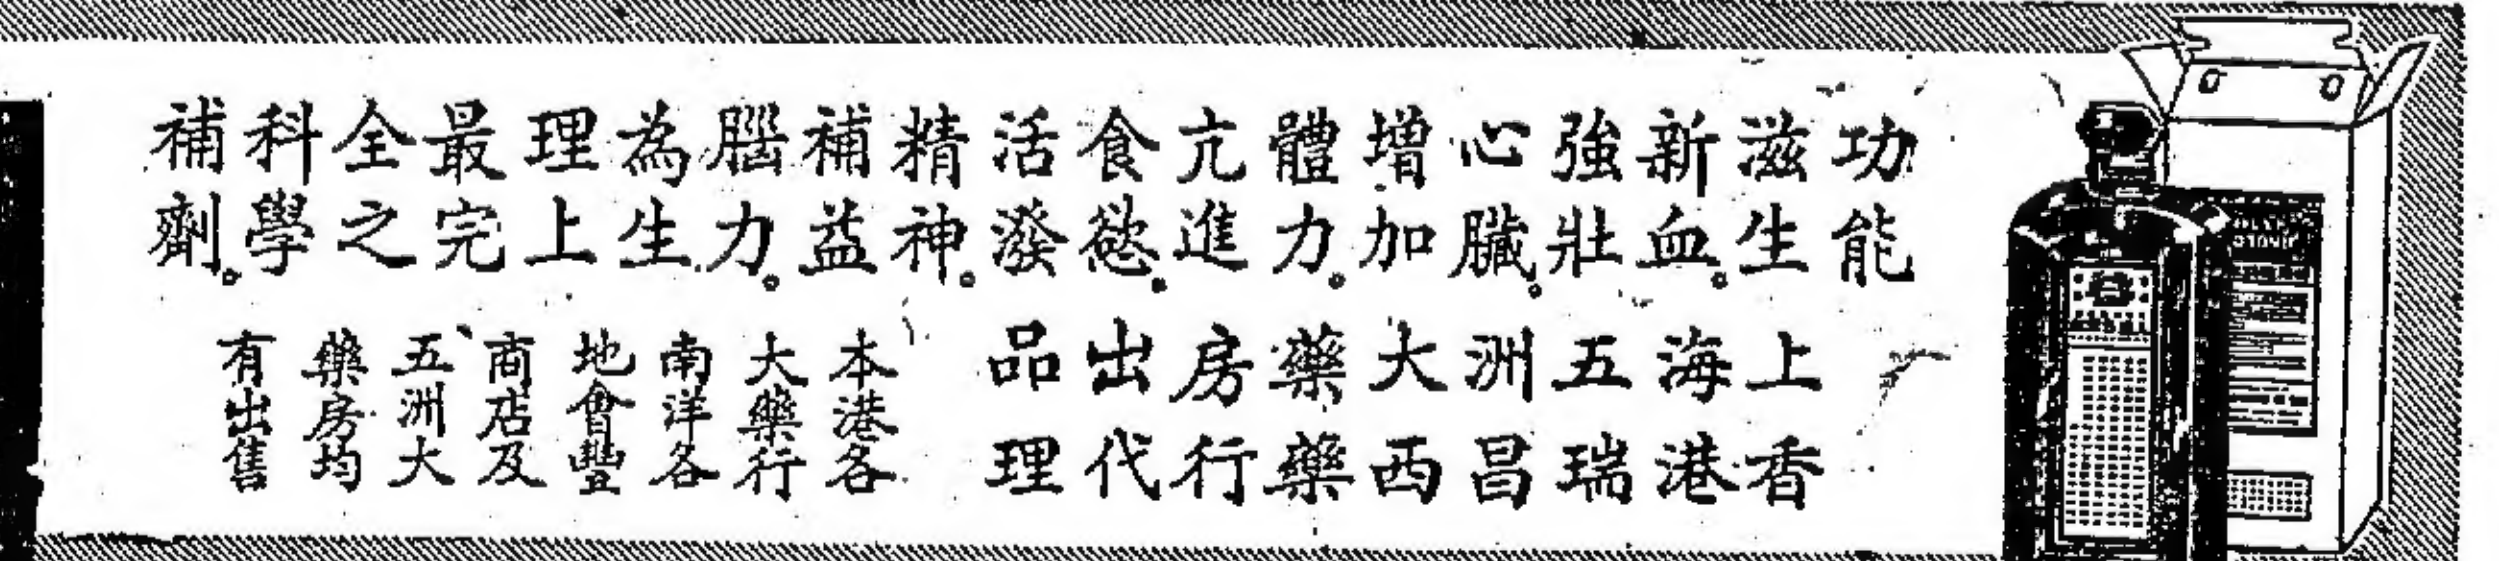 功能
滋生
新血。
強壯
心臟。
增加
體力。
亢進
食慾。
活潑
精神。
補益
腦力。
為生
理上
最完
全之
科學
補劑。
上海五洲大藥房出品
香港瑞昌西藥行代理
本港各
大藥行
南洋各
地會豐
商店及
五洲大
藥房均
有出售